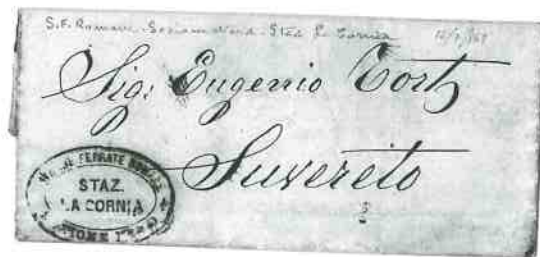 S.F. Romane - Sezione Nord - Staz. La Cornia
Sig: Eugenio
Suvereto
FERRATE ROMANE
STAZ.
LA CORNIA